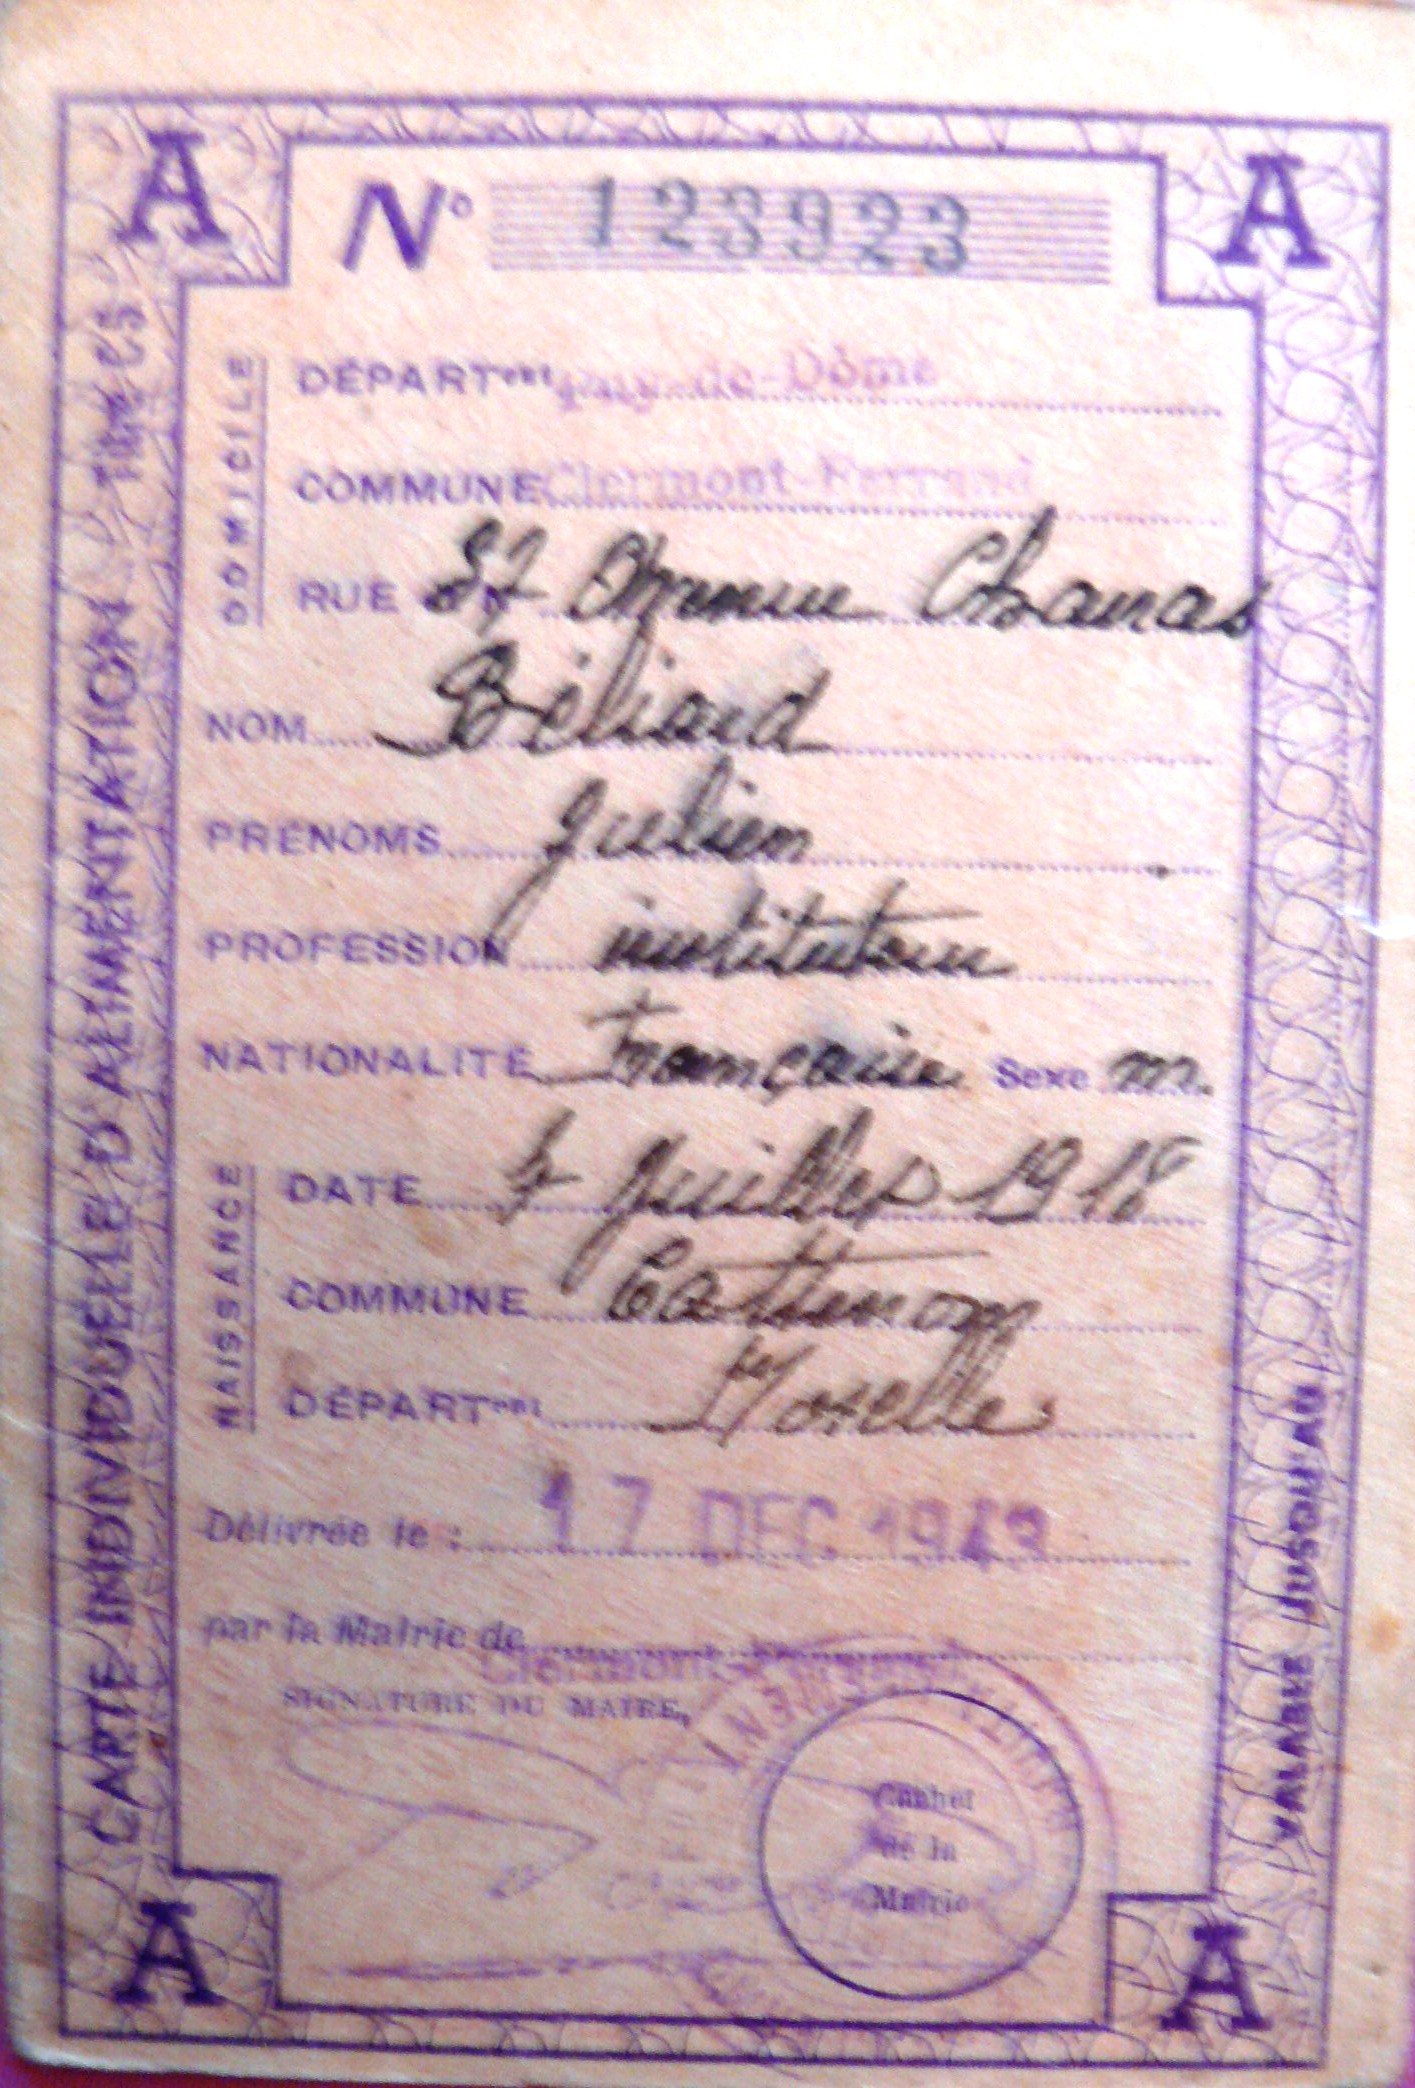 A A
N° 123923
DOMICILE
DÉPART^ment Puy-de-Dôme
COMMUNE Clermont-Ferrand
RUE Avenue Charras
NOM Béliard
PRÉNOMS Julien
PROFESSION instituteur
NATIONALITÉ Française Sexe m.
NAISSANCE
DATE Juillet 1918
COMMUNE Cattenom
DÉPART^ment Moselle
Délivrée le : 17 DEC 1943
par la Mairie de
Clermont-Ferrand
SIGNATURE DU MAIRE,
Cachet
de la
Mairie
A A
CARTE INDIVIDUELLE D'ALIMENTATION
VALABLE JUSQU'AU